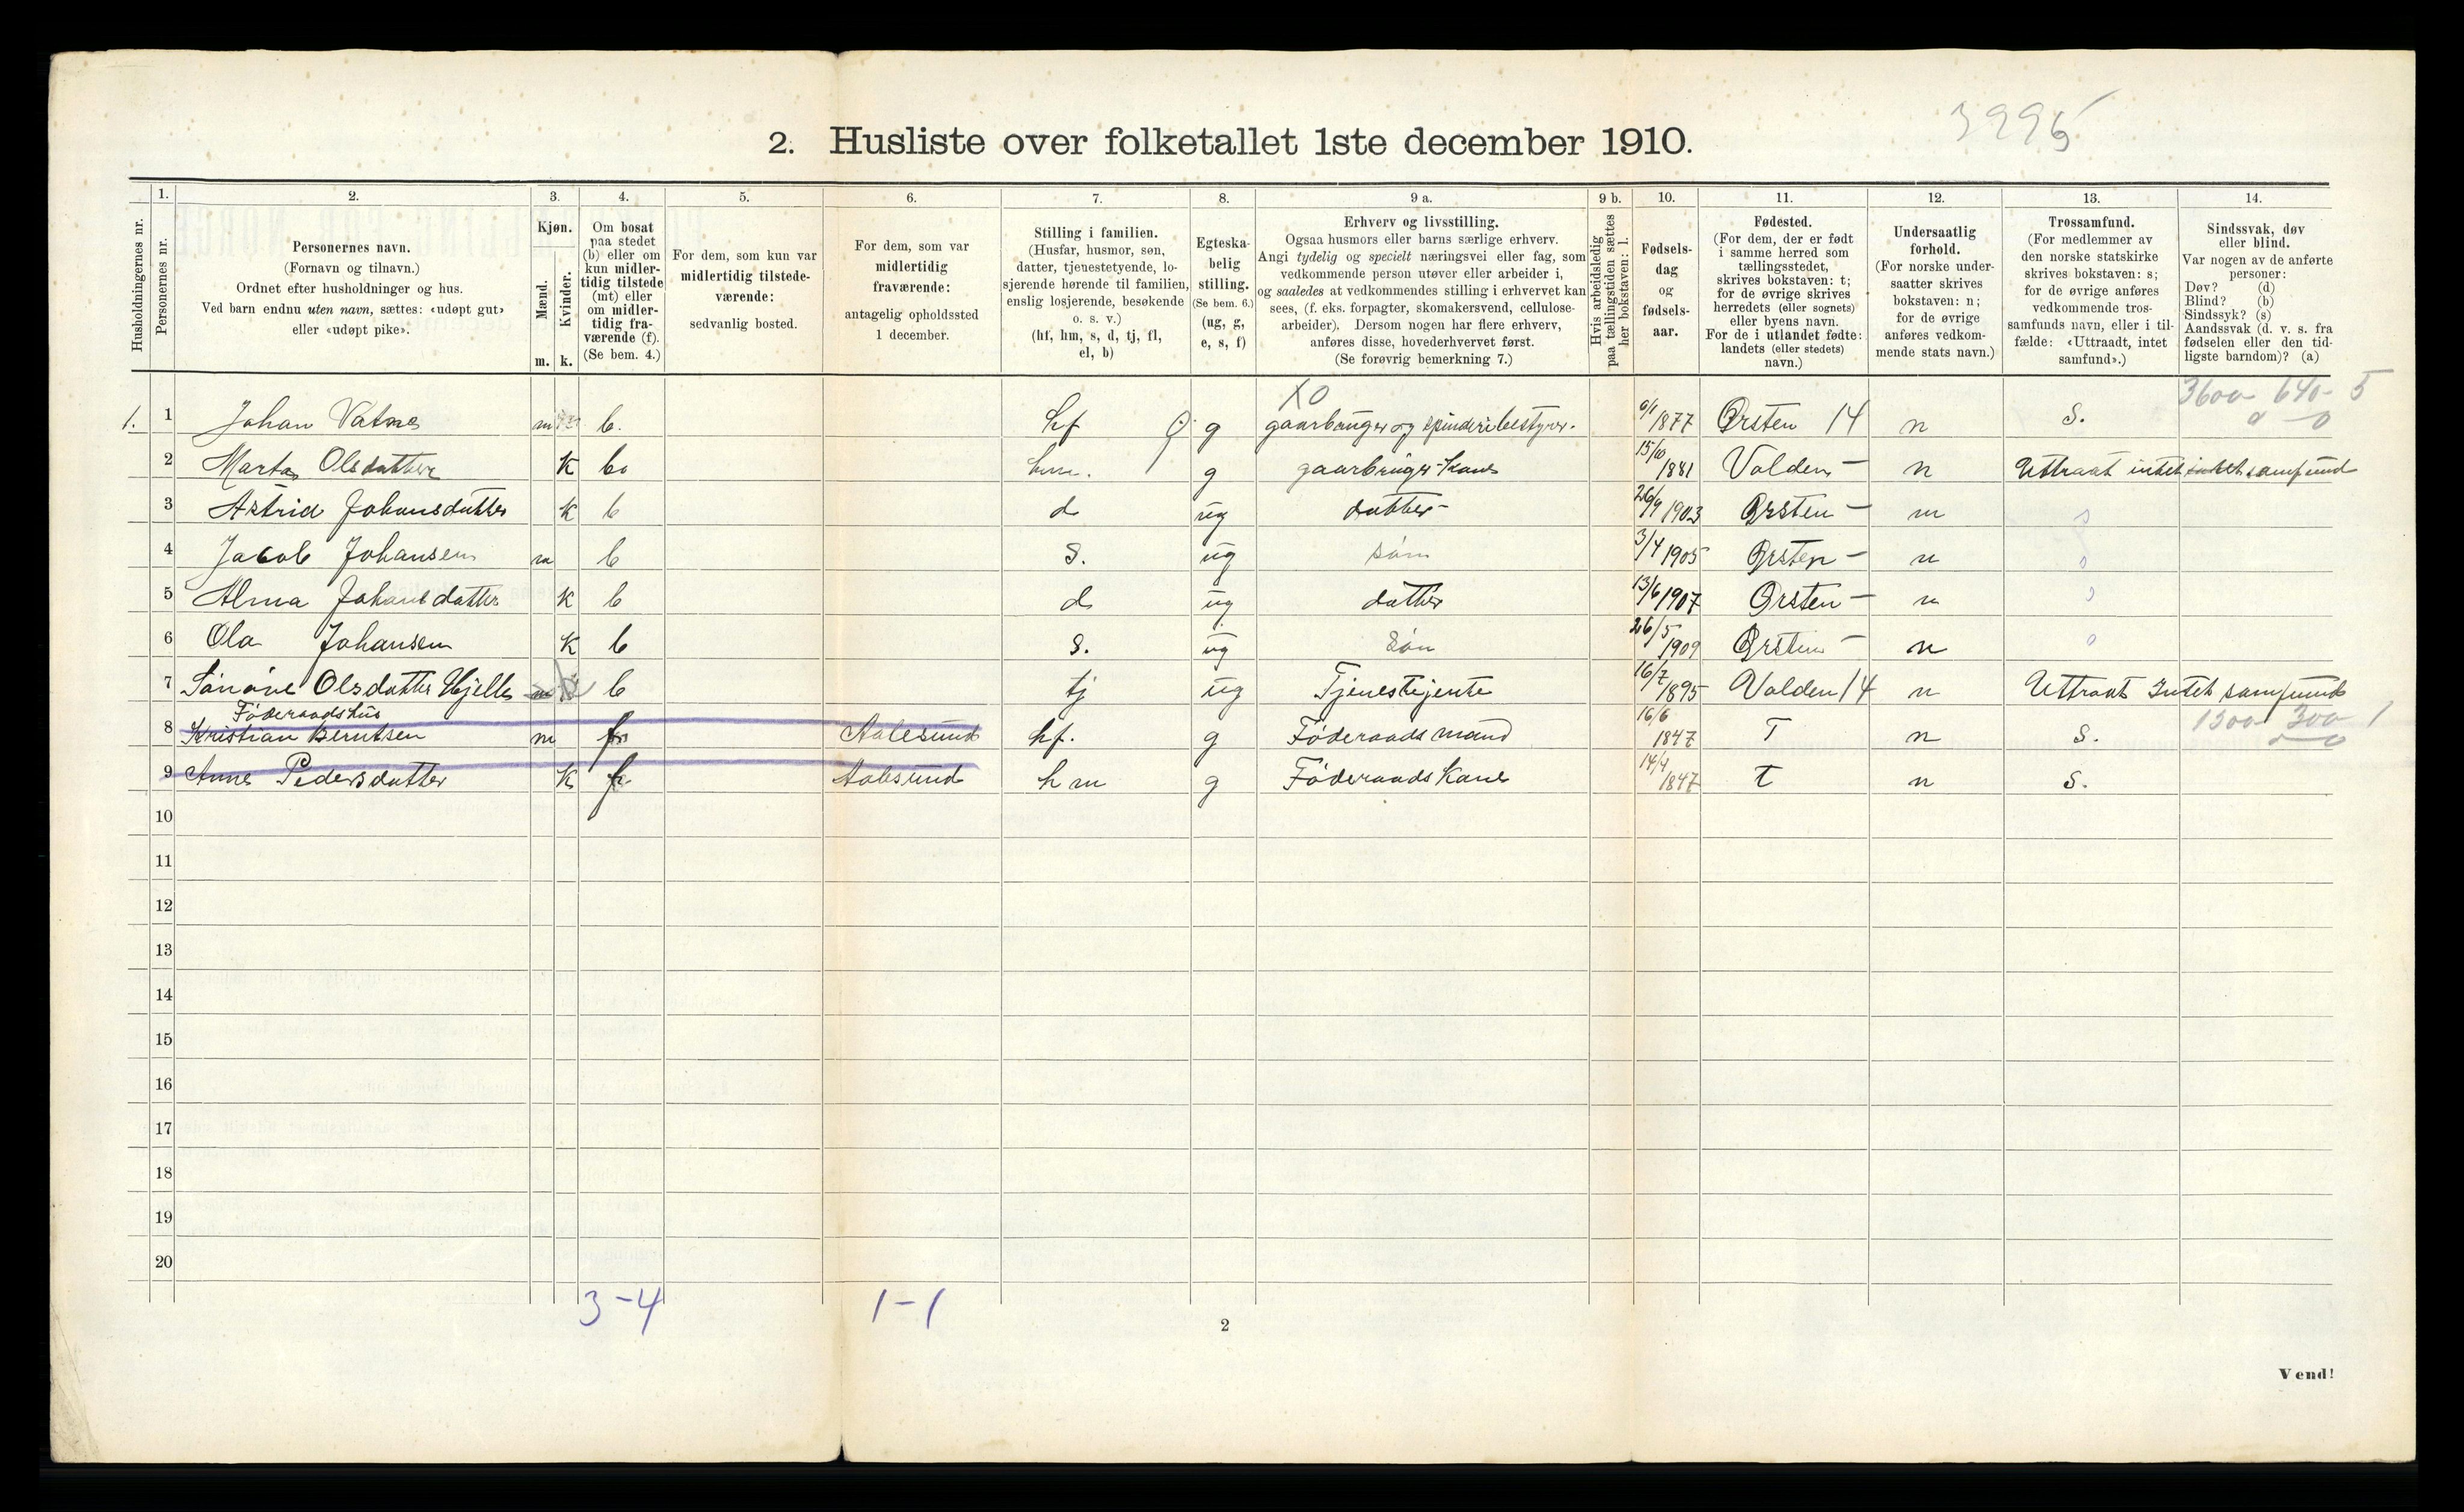 3995
2. Husliste over folketallet 1ste december 1910.
Husholdningernes nr.
1.
Personernes nr.
2.
Personernes navn.
(Fornavn og tilnavn.)
Ordnet efter husholdninger og hus.
Ved barn endnu uten navn, sættes: «udøpt gut»
eller «udøpt pike».
3.
Kjøn.
Mænd.
Kvinder.
m. k.
4.
Om bosat
paa stedet
(b) eller om
kun midler-
tidig tilstede
(mt) eller
om midler-
tidig fra-
værende (f).
(Se bem. 4.)
5.
For dem, som kun var
midlertidig tilstede-
værende:
sedvanlig bosted.
6.
For dem, som var
midlertidig
fraværende:
antagelig opholdssted
1 december.
7.
Stilling i familien.
(Husfar, husmor, søn,
datter, tjenestetyende, lo-
sjerende hørende til familien,
enslig losjerende, besøkende
o. s. v.)
(hf, hm, s, d, tj, fl,
el, b)
8.
Egteska-
belig
stilling.
(Se bem. 6.)
(ug, g,
e, s, f)
9 a.
Erhverv og livsstilling.
Ogsaa husmors eller barns særlige erhverv.
Angi tydelig og specielt næringsvei eller fag, som
vedkommende person utøver eller arbeider i,
og saaledes at vedkommendes stilling i erhvervet kan
sees, (f. eks. forpagter, skomakersvend, cellulose-
arbeider). Dersom nogen har flere erhverv,
anføres disse, hovederhvervet først.
(Se forøvrig bemerkning 7.)
9 b.
Hvis arbeidsledig
paa tællingstiden sættes
her bokstaven: l.
10.
Fødsels-
dag
og
fødsels-
aar.
11.
Fødested.
(For dem, der er født
i samme herred som
tællingsstedet,
skrives bokstaven: t;
for de øvrige skrives
herredets (eller sognets)
eller byens navn.
For de i utlandet fødte:
landets (eller stedets)
navn.)
12.
Undersaatlig
forhold.
(For norske under-
saatter skrives
bokstaven: n;
for de øvrige
anføres vedkom-
mende stats navn.)
13.
Trossamfund.
(For medlemmer av
den norske statskirke
skrives bokstaven: s;
for de øvrige anføres
vedkommende tros-
samfunds navn, eller i til-
fælde: «Uttraadt, intet
samfund».)
14.
Sindssvak, døv
eller blind.
Var nogen av de anførte
personer:
Døv? (d)
Blind? (b)
Sindssyk? (s)
Aandssvak (d. v. s. fra
fødselen eller den tid-
ligste barndom)? (a)
X0 3600- 640- 5
1. 1 Johan Vatne m b. hf g gaarbruger og spinderibestyrer. 6/1 1877 Ørsten 14 n S. 0
2 Marta Olsdatter k b hm. g gaarbruger-Kone 15/10 1881 Volden - n Uttraat intet intet samfund
3 Astrid Johansdatter k b d ug datter- 26/9 1903 Ørsten - n
4 Jacob Johansen m b S. ug søn 3/4 1905 Ørsten - n
5 Alma Johansdatter k b d ug datter 13/6 1907 Ørsten - n
6 Ola Johansen k b s. ug Søn 26/5 1909 Ørsten - n
7 Sånåve Olsdatter Hjelle m k b tj ug Tjenestejente 16/7 1895 Volden 14 n Uttraat Intet samfund
Föderaadshus 1300- 300 1
8 Kristian Berntsen m f Aalesund hf. g Föderaadsmand 16/6 1847 T n S. 0
9 Anne Pedersdatter k f Aalesund hm g Föderaads Kone 14/4 1847 t n S.
10
11
12
13
14
15
16
17
18
19
20
3-4 1-1
2
Vend!